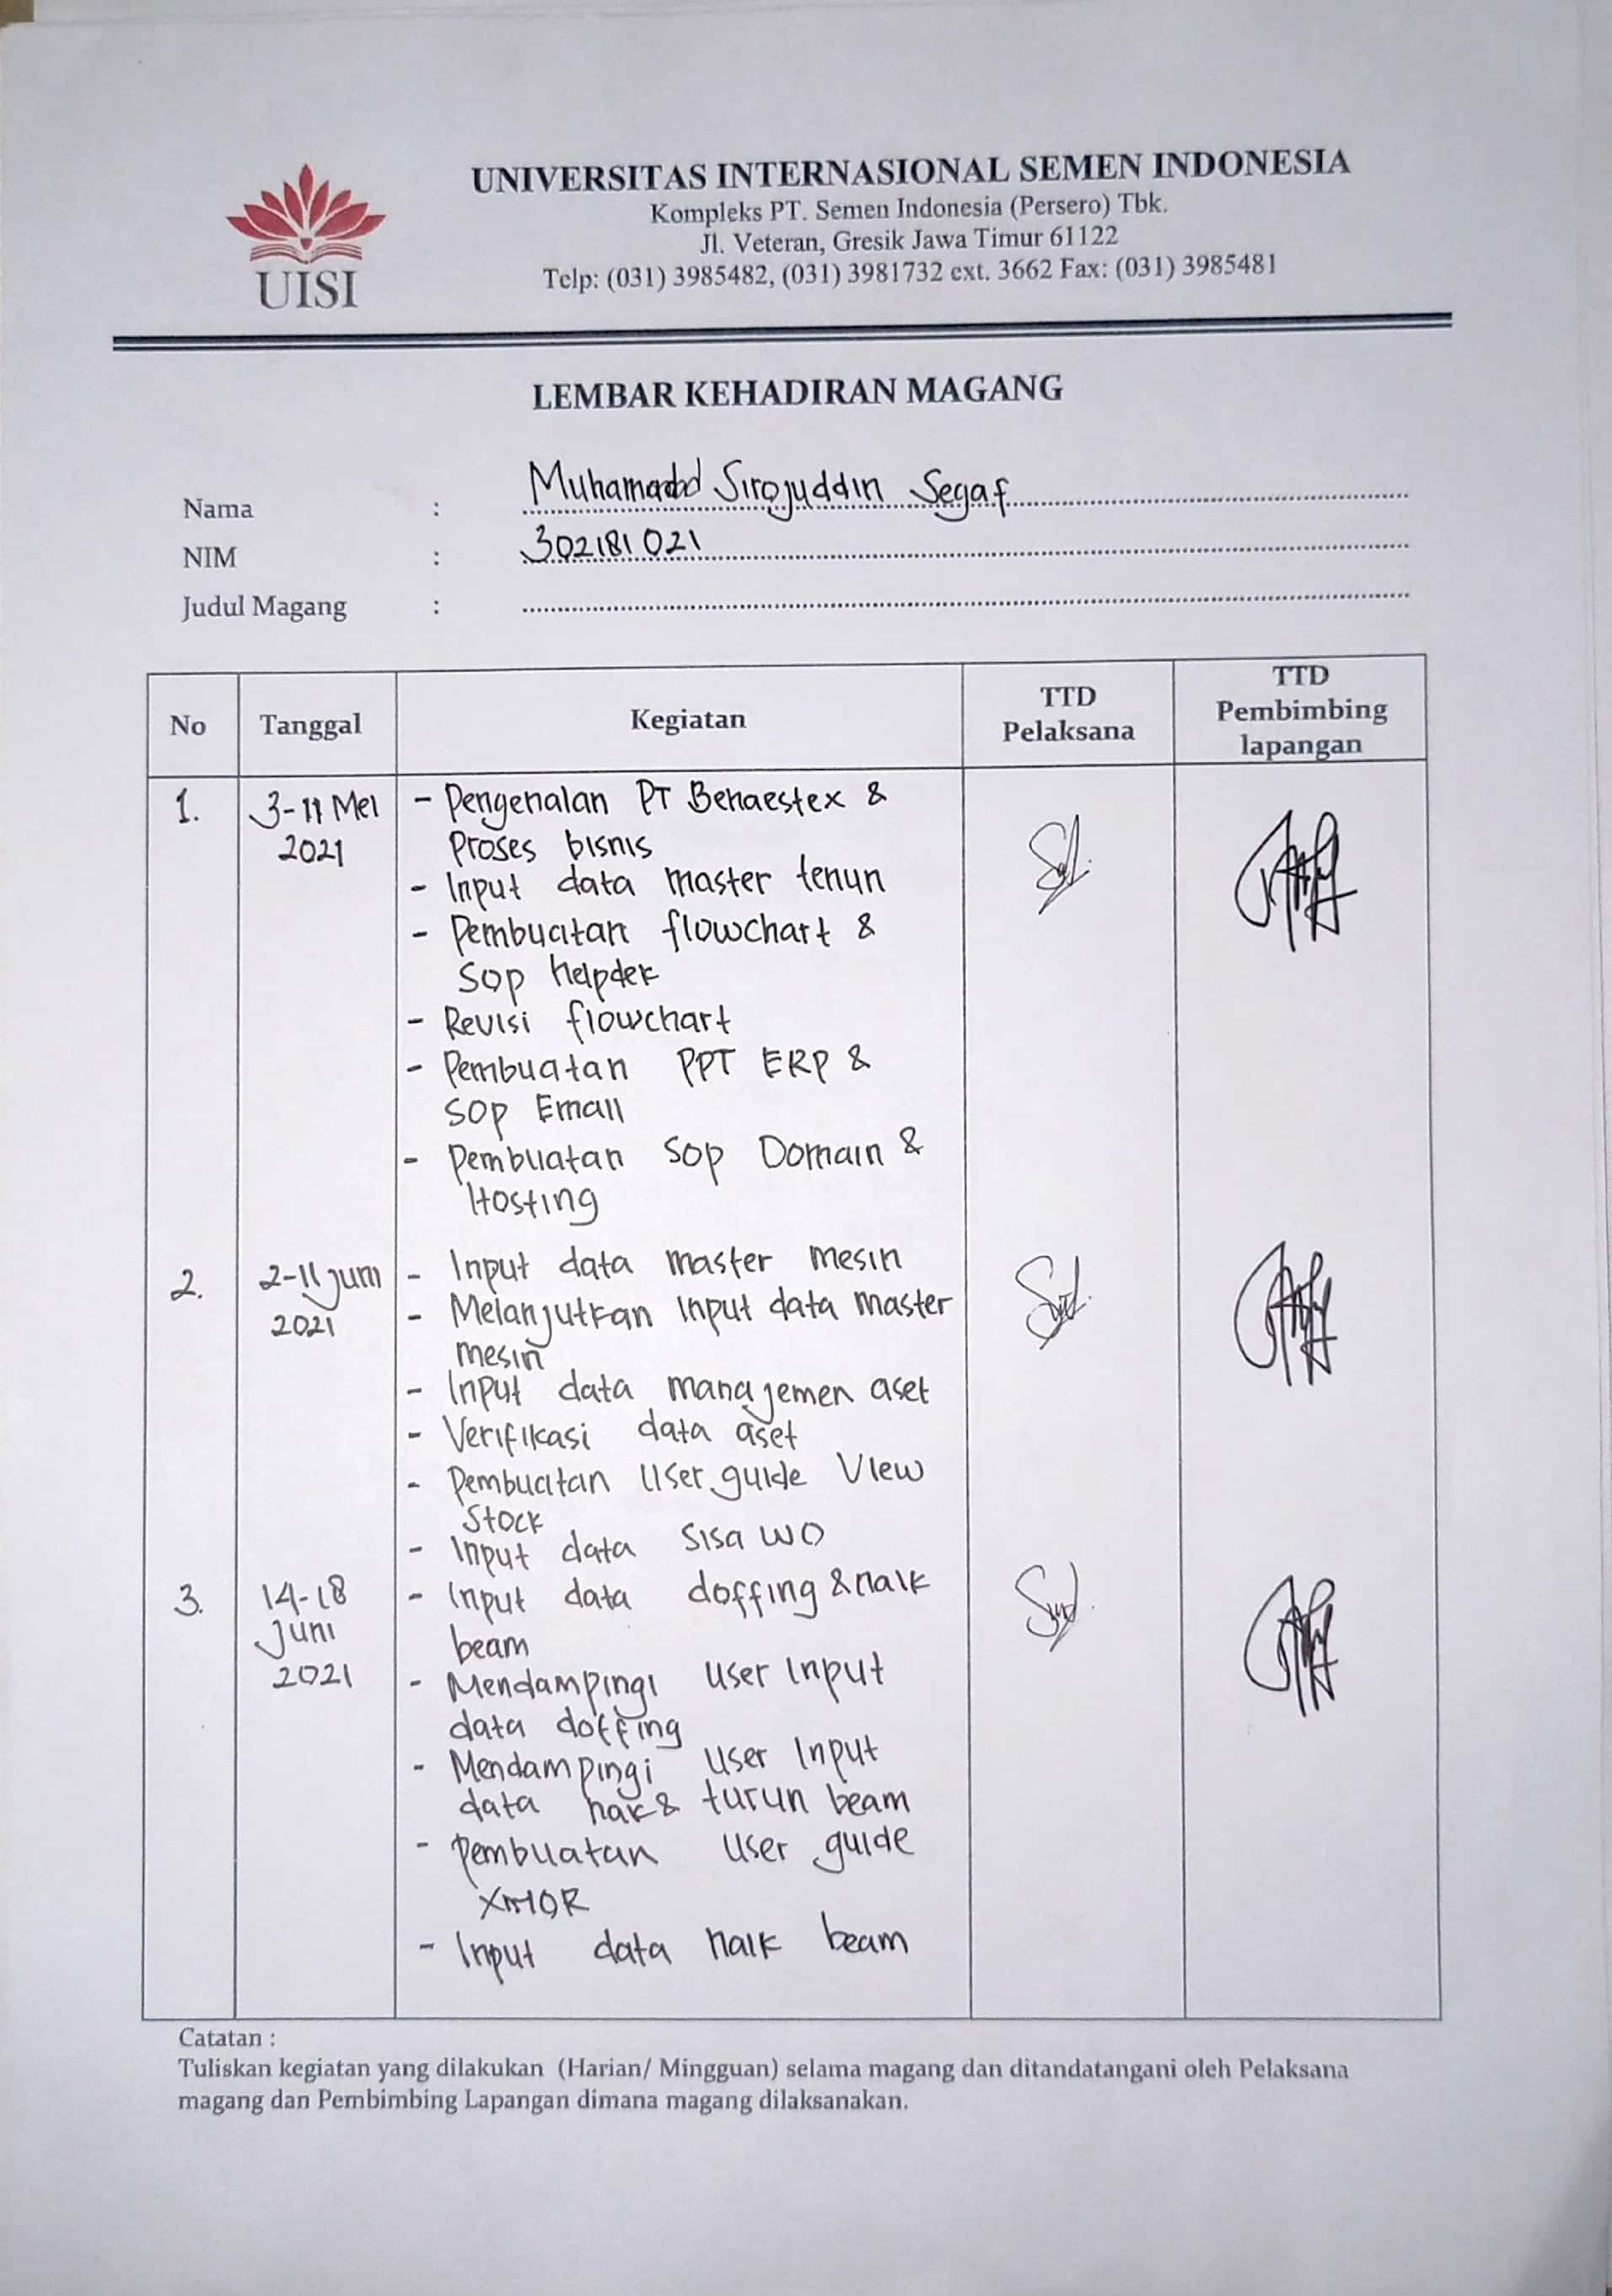 UISI
UNIVERSITAS INTERNASIONAL SEMEN INDONESIA
Kompleks PT. Semen Indonesia (Persero) Tbk.
Jl. Veteran, Gresik Jawa Timur 61122
Telp: (031) 3985482, (031) 3981732 ext. 3662 Fax: (031) 3985481
LEMBAR KEHADIRAN MAGANG
Nama : Sirojuddin Segaf
NIM : 302181021
Judul Magang :
No Tanggal Kegiatan TTD Pelaksana TTD Pembimbing lapangan
1. 3-11 Mei 2021
- Pengenalan PT Behaestex &
Proses bisnis
- Input data master tenun
- Pembuatan flowchart &
SOP helpdek
- Revisi flowchart
- Pembuatan PPT ERP &
SOP Email
- Pembuatan SOP Domain &
Hosting
2. 2-11 Juni 2021
- Input data master mesin
- Melanjutkan Input data master
mesin
- Input data manajemen aset
- Verifikasi data aset
- Pembuatan User guide View
Stock
- Input data Sisa WO
3. 14-18 Juni 2021
- Input data doffing & naik
beam
- Mendampingi User Input
data doffing
- Mendampingi User Input
data naik & turun beam
- Pembuatan User guide
- Input data naik beam
Catatan :
Tuliskan kegiatan yang dilakukan (Harian/ Mingguan) selama magang dan ditandatangani oleh Pelaksana
magang dan Pembimbing Lapangan dimana magang dilaksanakan.